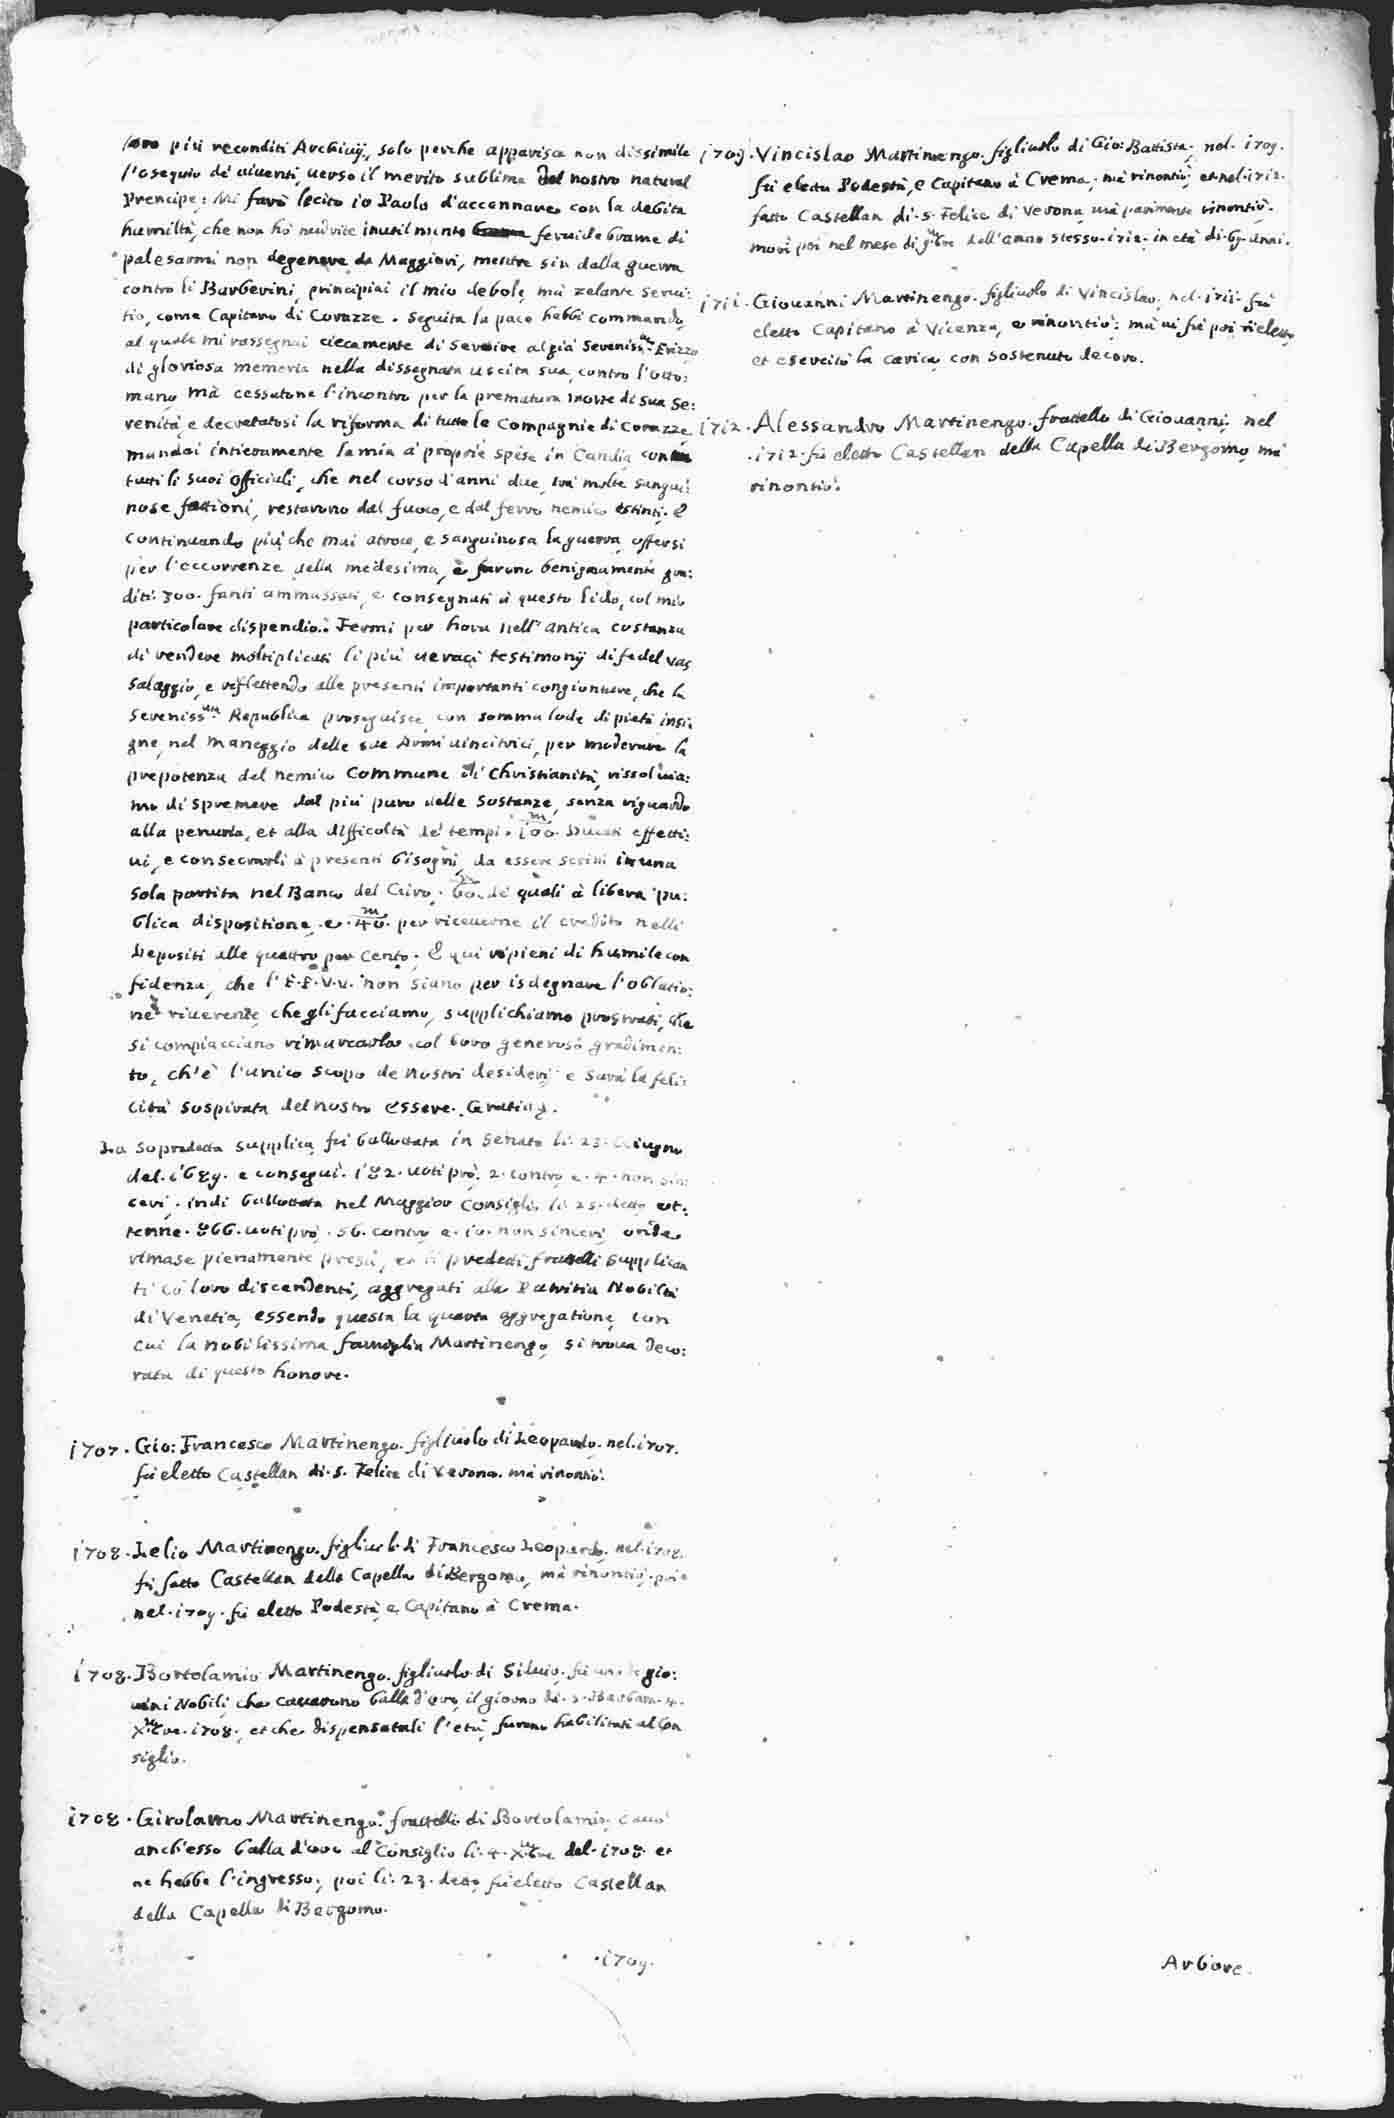 loro più reconditi Archivij, solo perche apparisca non dissimile
l'osequio de viventi, verso il merito sublime del nostro natural
Prencipe: Mi farò lecito io Paolo d'accennare con la debita
humiltà, che non hò nudrite inutilmente fervide brame di
palesarmi non degenere da Maggiori, mentre sin dalla guerra
contro li Barberini, principiai il mio debole, mà zelante servi:
tio, come Capitano di Corazze. Seguita la pace hebbi commando,
al quale mi rassegnai ciecamente di servire al già Sereniss.mo Erizzo
di gloriosa memoria nella dissegnata uscita sua, contro l'otto:
mano, mà cessatone l'incontro per la prematura morte di sua se:
renità, e decretatosi la riforma di tutte le Compagnie di Corazze,
mandai intieramente la mia à proprie spese in Candia, con
tutti li suoi officiali, che nel corso d'anni due, trà molte sangui:
nose fattioni, restarono dal fuoco, e dal ferro nemico estinti. E
continuando più che mai atroce, e sanguinosa la guerra, offersi
per l'occorrenze della medesima, e furono benignamente gra:
diti 300. fanti ammassati, e consegnati à questo lido, col mio
particolare dispendio. Fermi per hora nell'antica costanza
di rendere moltiplicati li più veraci testimonij di fedel vas
salaggio, e riflettendo alle presenti importanti congionture, che la
Sereniss.ma Republica proseguisce, con somma lode di pietà insi:
gne, nel maneggio delle sue Armi vincitrici, per moderare la
prepotenza del nemico commune di Christianità, rissolvia:
mo di spremere dal più puro delle sostanze, senza riguardo
alla penuria, et alla difficoltà de' tempi. 100.m Ducati effetti:
vi, e consecrarli à presenti bisogni, da essere scritti in una
sola partita nel Banco del Giro. 60.m de quali à libera pu:
blica dispositione, e. 40.m per riceverne il credito nelli
Depositi alle quattro per cento. E qui ripieni di humile con
fidenza, che l'E.E.V.V. non siano per isdegnare l'oblatio:
ne riverente, che gli facciamo, supplichiamo prostrati, che
si compiacciano rimarcarla col loro generoso gradimen:
to, ch'è l'unico scopo de nostri desiderij e sarà la feli:
cità sospirata del nostro essere. Gratie.
La sopradetta supplica, fù ballottata in Senato li. 23. Giugno
del. 1689. e conseguì. 182. voti prò. 2. contro, e. 4. non sin
ceri. indi ballottata nel Maggior Consiglio li 25. detto ot:
tenne. 866. voti prò. 56. contro e. 10. non sinceri, onde
rimase pienamente presa, et li predetti fratelli supplican
ti cò loro discendenti, aggregati alla Patritia Nobiltà
di Venetia, essendo questa la quarta aggregatione, con
cui la nobilissima famiglia Martinengo, si trova deco:
rata di questo honore.
1707. Gio: Francesco Martinengo. figliuolo di Leopardo. nel. 1707.
fù eletto Castellan di. S. Felice di Verona. mà rinontiò.
1708. Lelio Martinengo. figliuolo di Francesco Leopardo. nel. 1708.
fù fatto Castellan della Capella di Bergomo, mà rinontiò. poi
nel. 1709. fù eletto Podestà, e Capitano à Crema.
1708. Bortolamio Martinengo. figliuolo di Silvio. fù uno de gio:
vini Nobili, che cavarono balla d'oro, il giorno di. S. Barbara. 4.
X.mbre. 1708., et che dispensatali l'età, furono habilitati al Con
siglio.
1708. Girolamo Martinengo. fratello di Bortolamio. cavò
anch'esso balla d'oro al Consiglio li. 4. X.mbre del. 1708. et
ne hebbe l'ingresso, poi li. 23. detto, fù eletto Castellan
della Capella di Bergomo.
.1709.
1709. Vincislao Martinengo. figliuolo di Gio: Battista. nel. 1709.
fù eletto Podestà, e Capitano à Crema, mà rinontiò, et nel. 1712.
fatto Castellan di. S. Felice di Verona, mà parimente rinontiò.
morì poi nel mese di 9.mbre dell'anno stesso. 1712. in età di. 69. anni.
1711. Giovanni Martinengo. figliuolo di Vincislao. nel. 1711. fù
eletto Capitano à Vicenza, e rinontiò; mà vi fù poi rieletto,
et esercitò la carica, con sostenuto decoro.
1712. Alessandro Martinengo. fratello di Giovanni. nel
.1712. fù eletto Castellan della Capella di Bergomo, mà
rinontiò.
Arbore.